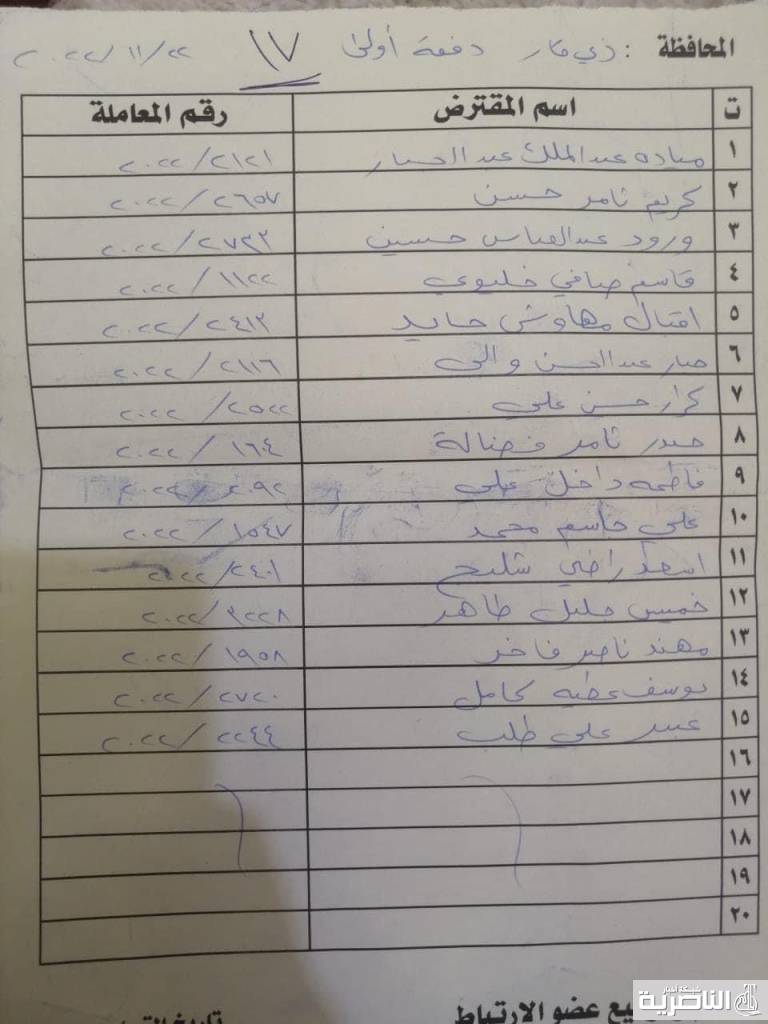 المحافظة : ذي قار دفعة أولى ١٧ ٢٠٢٢/١١/٢٢
ت اسم المقترض رقم المعاملة
١ مياده عبد الملك عبد الجبار ٢٠٢٢/٢١٢١
٢ كريم ثامر حسن ٢٠٢٢/٢٦٥٧
٣ ورود عبد العباس حسين ٢٠٢٢/٢٧٢٣
٤ قاسم صافي خليوي ٢٠٢٢/١١٢٢
٥ اقبال مهاوش حايد ٢٠٢٢/٢٤١٣
٦ جبار عبد الحسن والي ٢٠٢٢/٢١١٦
٧ كرار حسن علي ٢٠٢٢/٢٥٢٢
٨ حيدر ثامر فضالة ٢٠٢٢/١٦٠٤
٩ فاطمه داخل علي ٢٠٢٢/٢٠٩٢
١٠ علي جاسم محمد ٢٠٢٢/١٥٤٧
١١ اسعد راضي شليج ٢٠٢٢/٢٤٠١
١٢ خميس جليل طاهر ٢٠٢٢/٢٢٢٨
١٣ مهند ناصر فاخر ٢٠٢٢/١٩٥٨
١٤ يوسف عطيه كامل ٢٠٢٢/٢٧٢٠
١٥ عبير علي طلب ٢٠٢٢/٢٢٤٤
١٦
١٧
١٨
١٩
٢٠
عضو الارتباط
شبكة أخبار
الناصرية